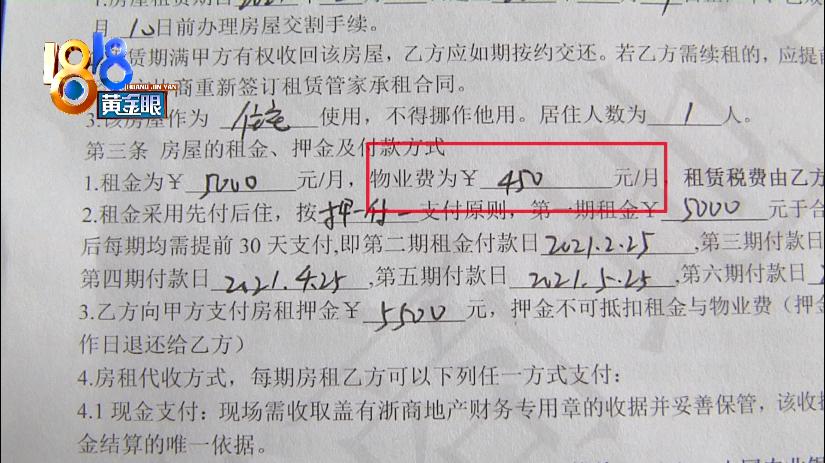 月10日前办理房屋交割手续。
赁期满甲方有权收回该房屋，乙方应如期按约交还。若乙方需续租的，应提前
商重新签订租赁管家承租合同。
1818
HUANG JIN YAN
黄金眼
3.该房屋作为 住宅 使用，不得挪作他用。居住人数为 1 人。
第三条 房屋的租金、押金及付款方式
1.租金为￥ 5000 元/月，物业费为￥ 450 元/月，租赁税费由乙方
2.租金采用先付后住，按押一付一支付原则，第一期租金￥ 5000 元于合
后每期均需提前 30 天支付,即第二期租金付款日 2021.2.25 ,第三期付款日
第四期付款日 2021.4.25 ,第五期付款日 2021.5.25 ,第六期付款日
3.乙方向甲方支付房租押金￥ 5500 元，押金不可抵扣租金与物业费（押金
作日退还给乙方）
4.房租代收方式，每期房租乙方可以下列任一方式支付：
4.1 现金支付：现场需收取盖有浙商地产财务专用章的收据并妥善保管，该收据
金结算的唯一依据。